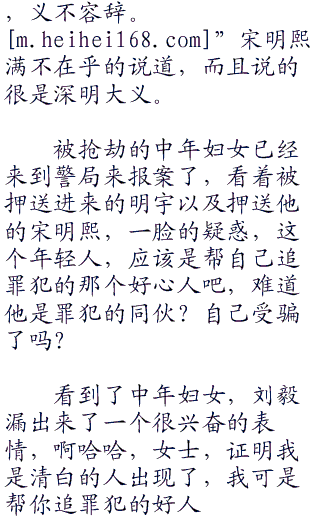 ，义不容辞。
[m.heihei168.com]”宋明熙
满不在乎的说道，而且说的
很是深明大义。
被抢劫的中年妇女已经
来到警局来报案了，看着被
押送进来的明宇以及押送他
的宋明熙，一脸的疑惑，这
个年轻人，应该是帮自己追
罪犯的那个好心人吧，难道
他是罪犯的同伙？自己受骗
了吗？
看到了中年妇女，刘毅
漏出来了一个很兴奋的表
情，啊哈哈，女士，证明我
是清白的人出现了，我可是
帮你追罪犯的好人